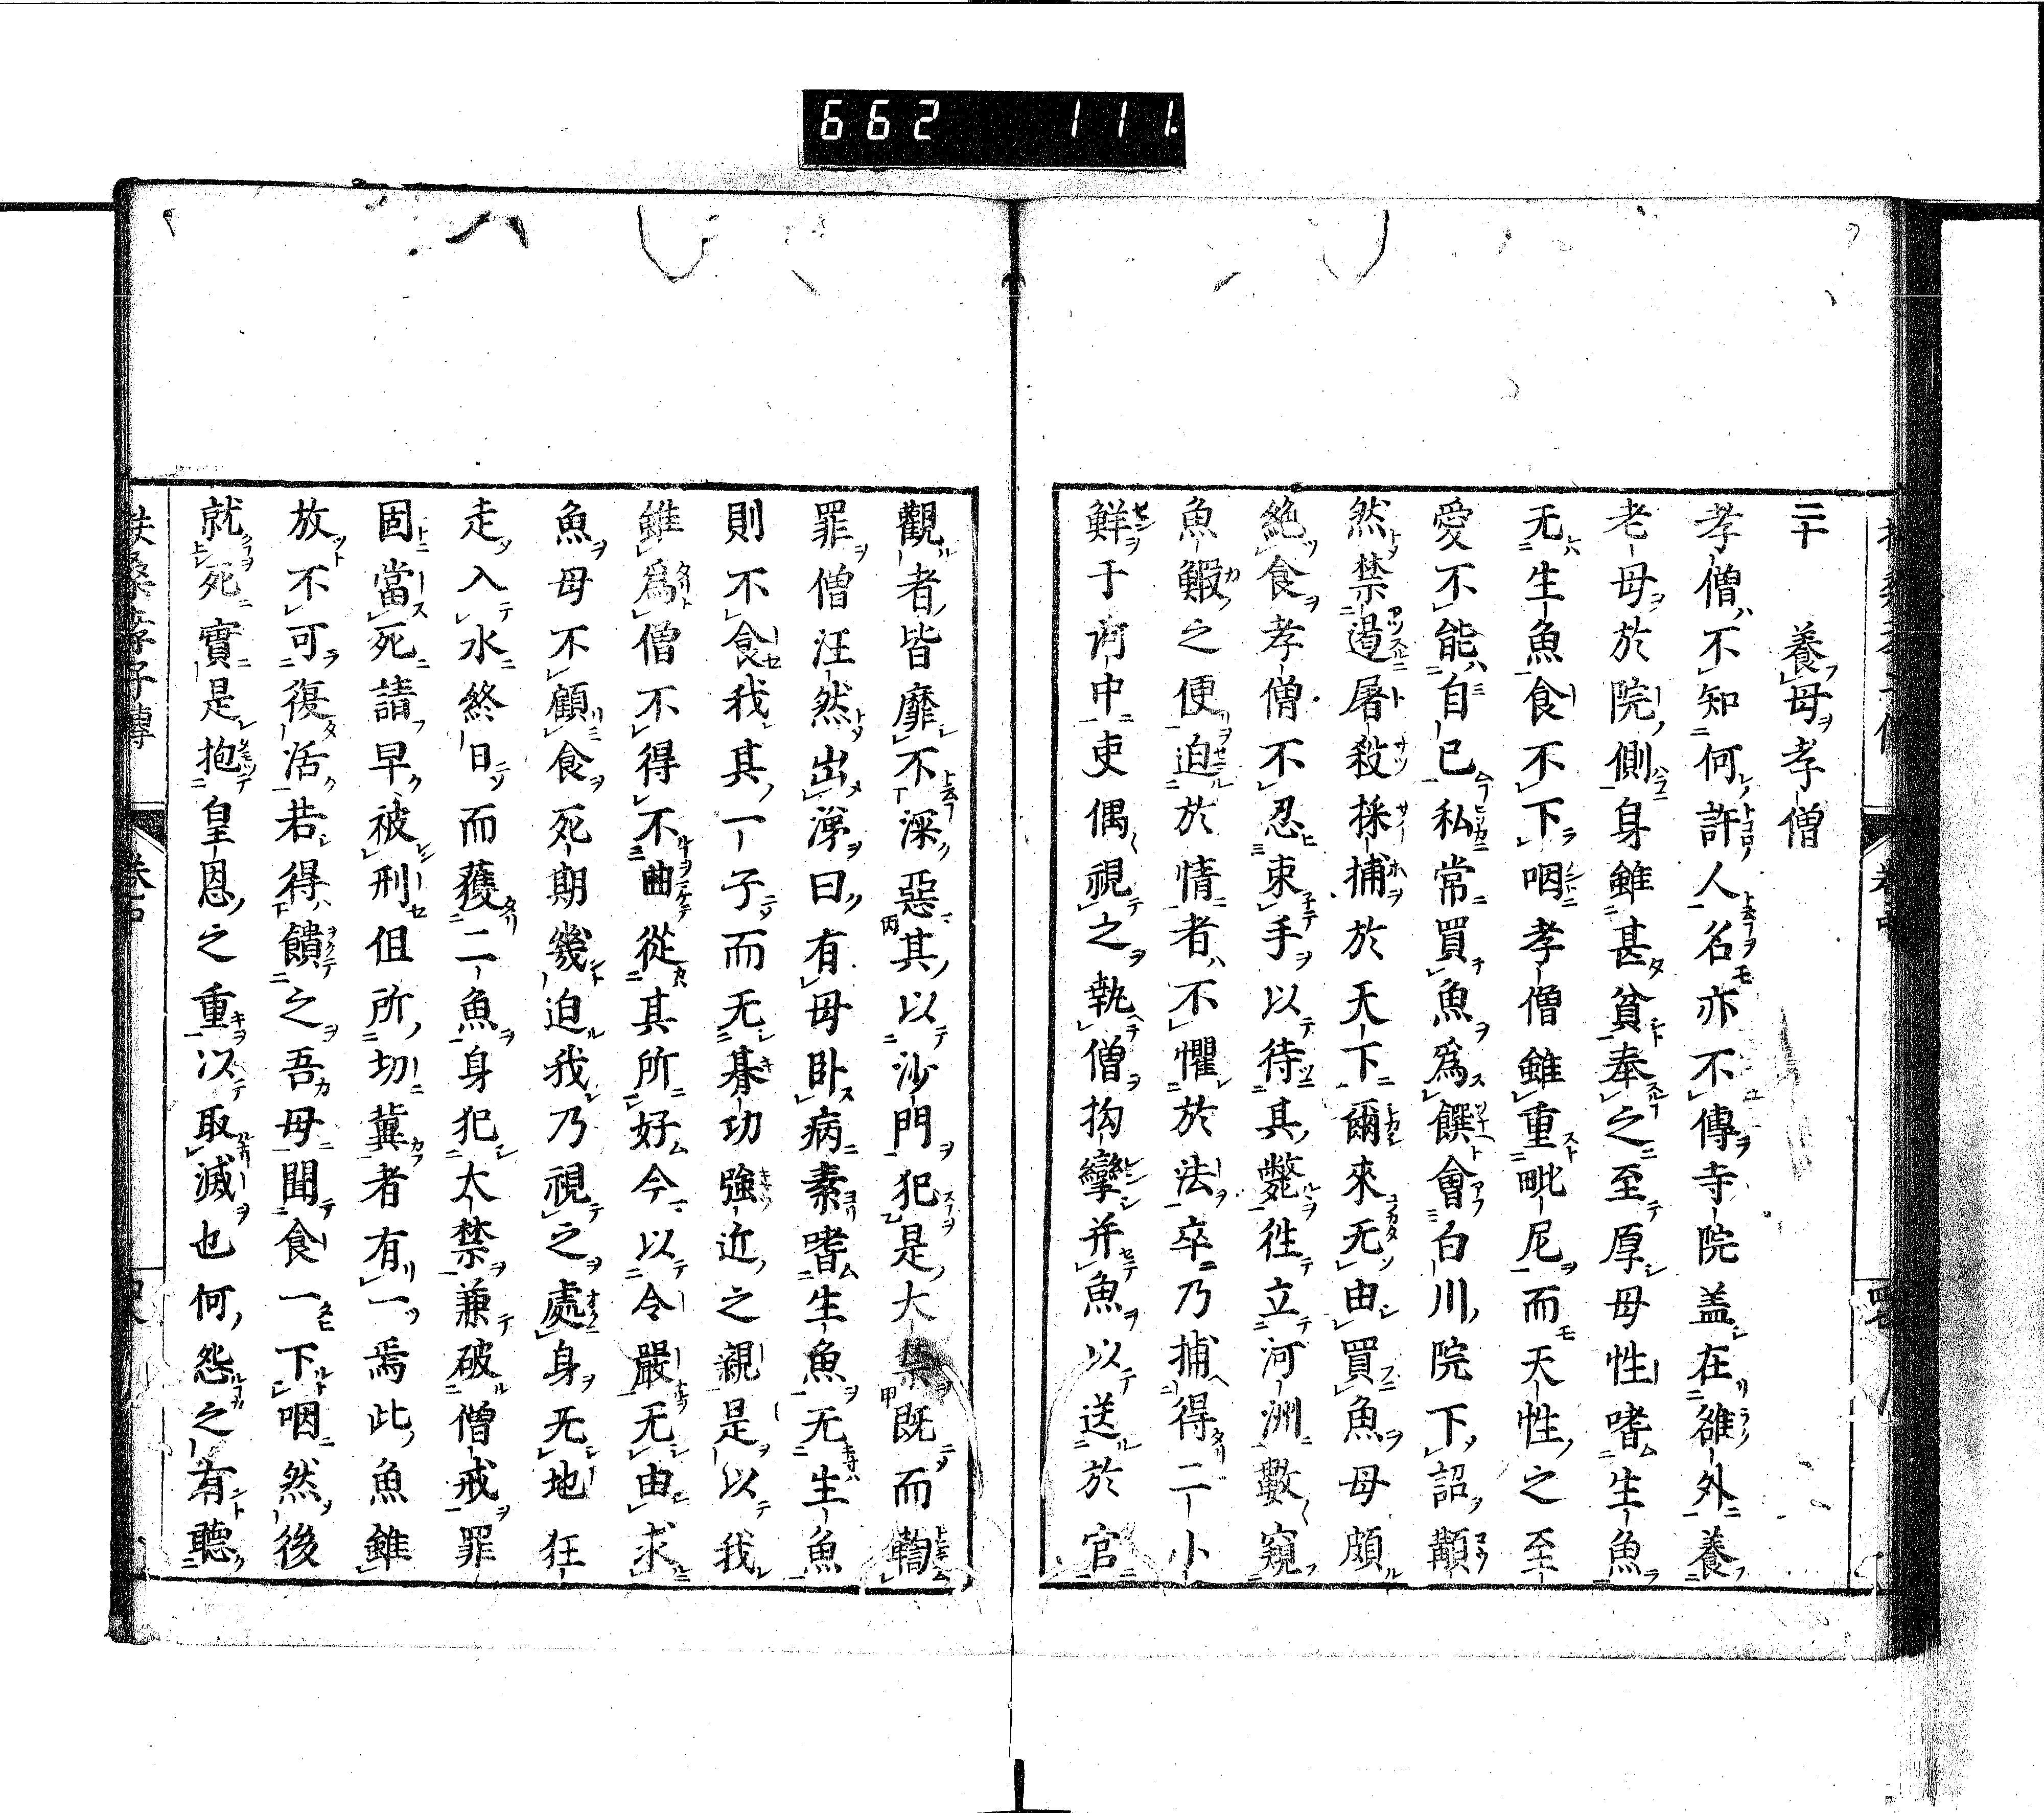 662 111.
二十 養母孝僧
孝僧不知何許人名亦不傳寺院盖在雒外養
老母於院側身雖甚貧奉之至厚母性嗜生魚
无生魚食不下咽孝僧雖重毗尼而天性之至
愛不能自已私常買魚爲饌會白川院下詔顯
然禁遏屠殺採捕於天下爾來无由買魚母頗
絶食孝僧不忍束手以待其斃徃立河洲數窺
魚鰕之便迫於情者不懼於法卒乃捕得二小
鮮于河中吏偶視之執僧拘攣并魚以送於官
觀者皆靡不深惡其以沙門犯是大禁既而鞫
罪僧汪然出涕曰有母臥病素嗜生魚无生魚
則不食我其一子而无朞功強近之親是以我
雖爲僧不得不曲從其所好今以令嚴无由求
魚母不顧食死期幾迫我乃視之處身无地狂
走入水終日而獲二魚身犯大禁兼破僧戒罪
固當死請早被刑但所切冀者有一焉此魚雖
放不可復活若得饋之吾母聞食一下咽然後
就死實是抱皇恩之重以取滅也何怨之有聽
扶桑孝子傳 卷